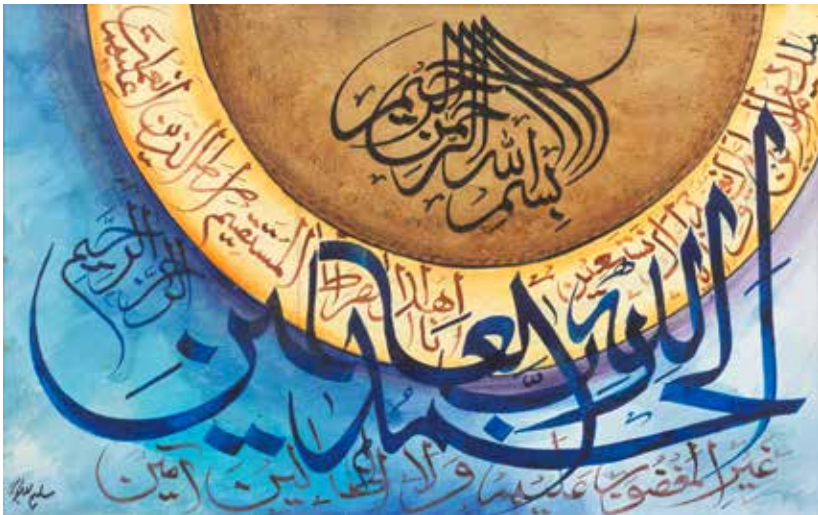 بسم الله الرحمن الرحيم
الحمد لله رب العالمين
الرحمن الرحيم
ملك يوم الدين
اياك نعبد و اياك نستعين
اهدنا الصراط المستقيم صراط الذين انعمت عليهم
غير المغضوب عليهم ولا الضالين آمين